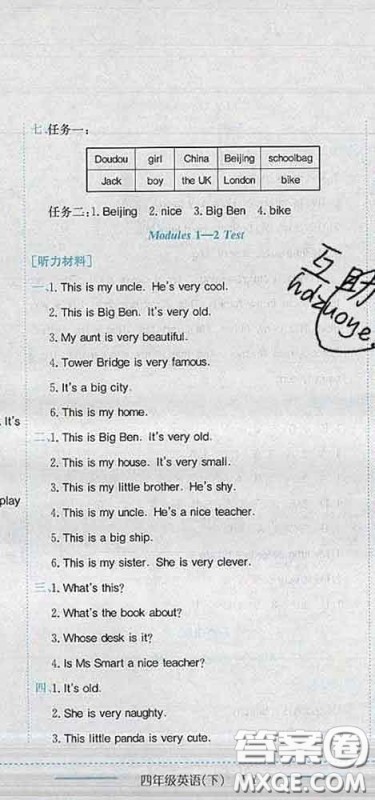 七、任务一：
Doudou girl China Beijing schoolbag
Jack boy the UK London bike
任务二：1. Beijing 2. nice 3. Big Ben 4. bike
Modules 1—2 Test
[听力材料]
一、1. This is my uncle. He's very cool.
2. This is Big Ben. It's very old.
3. My aunt is very beautiful.
4. Tower Bridge is very famous.
5. It's a big city.
6. This is my home.
. It's
二、1. This is Big Ben. It's very old.
2. This is my house. It's very small.
3. This is my little brother. He's shy.
play
4. This is my uncle. He's a nice teacher.
5. This is a big ship.
6. This is my sister. She is very clever.
三、1. What's this?
2. What's the book about?
3. Whose desk is it?
4. Is Ms Smart a nice teacher?
四、1. It's old.
2. She is very naughty.
3. This little panda is very cute.
四年级英语(下)
互助
hdzuoye.
答案圈
MXQE.COM